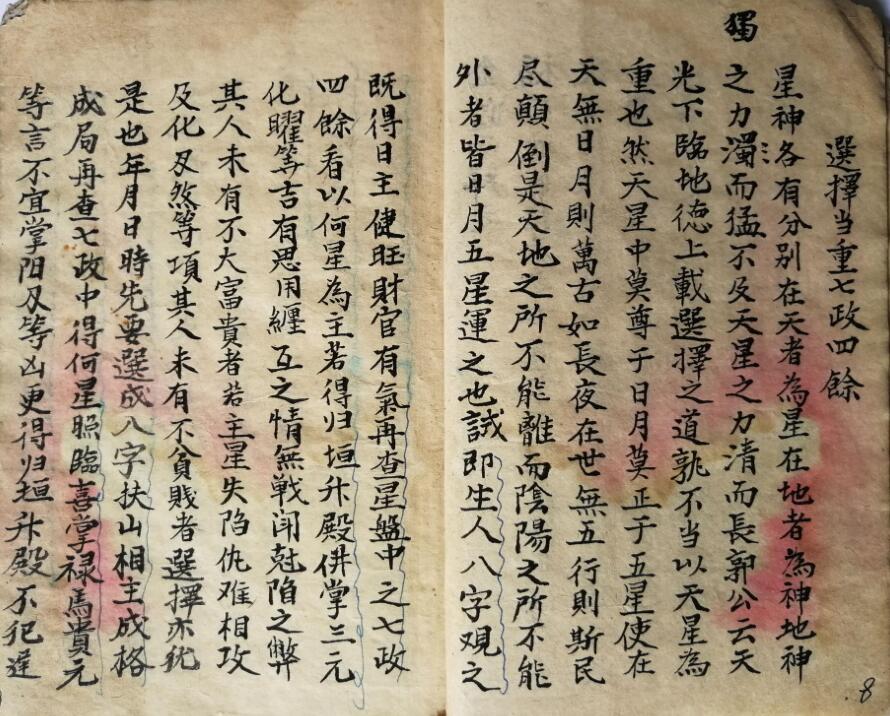 選擇当重七政四餘
星神各有分别在天者為星在地者為神地神
獨
之力濁而猛不及天星之力清而長郭公云天
光下臨地徳上載選擇之道孰不当以天星為
重也然天星中莫尊于日月莫正于五星使在
天無日月則萬古如長夜在世無五行則斯民
尽顛倒是天地之所不能離而陰陽之所不能
外者皆日月五星運之也誠即生人八字观之
既得日主健旺財官有氣再查星盤中之七政
四餘看以何星為主若得归垣升殿併掌三元
化曜等吉有恩用纏互之情無戦闹尅陷之弊
其人未有不大富貴者若主星失陷仇难相攻
及化刃煞等項其人未有不貧賤者選擇亦犹
是也年月日時先要選成八字扶山相主成格
成局再查七政中得何星照臨喜掌禄馬貴元
等言不宜掌阳刃等凶更得归垣升殿不犯遅
8